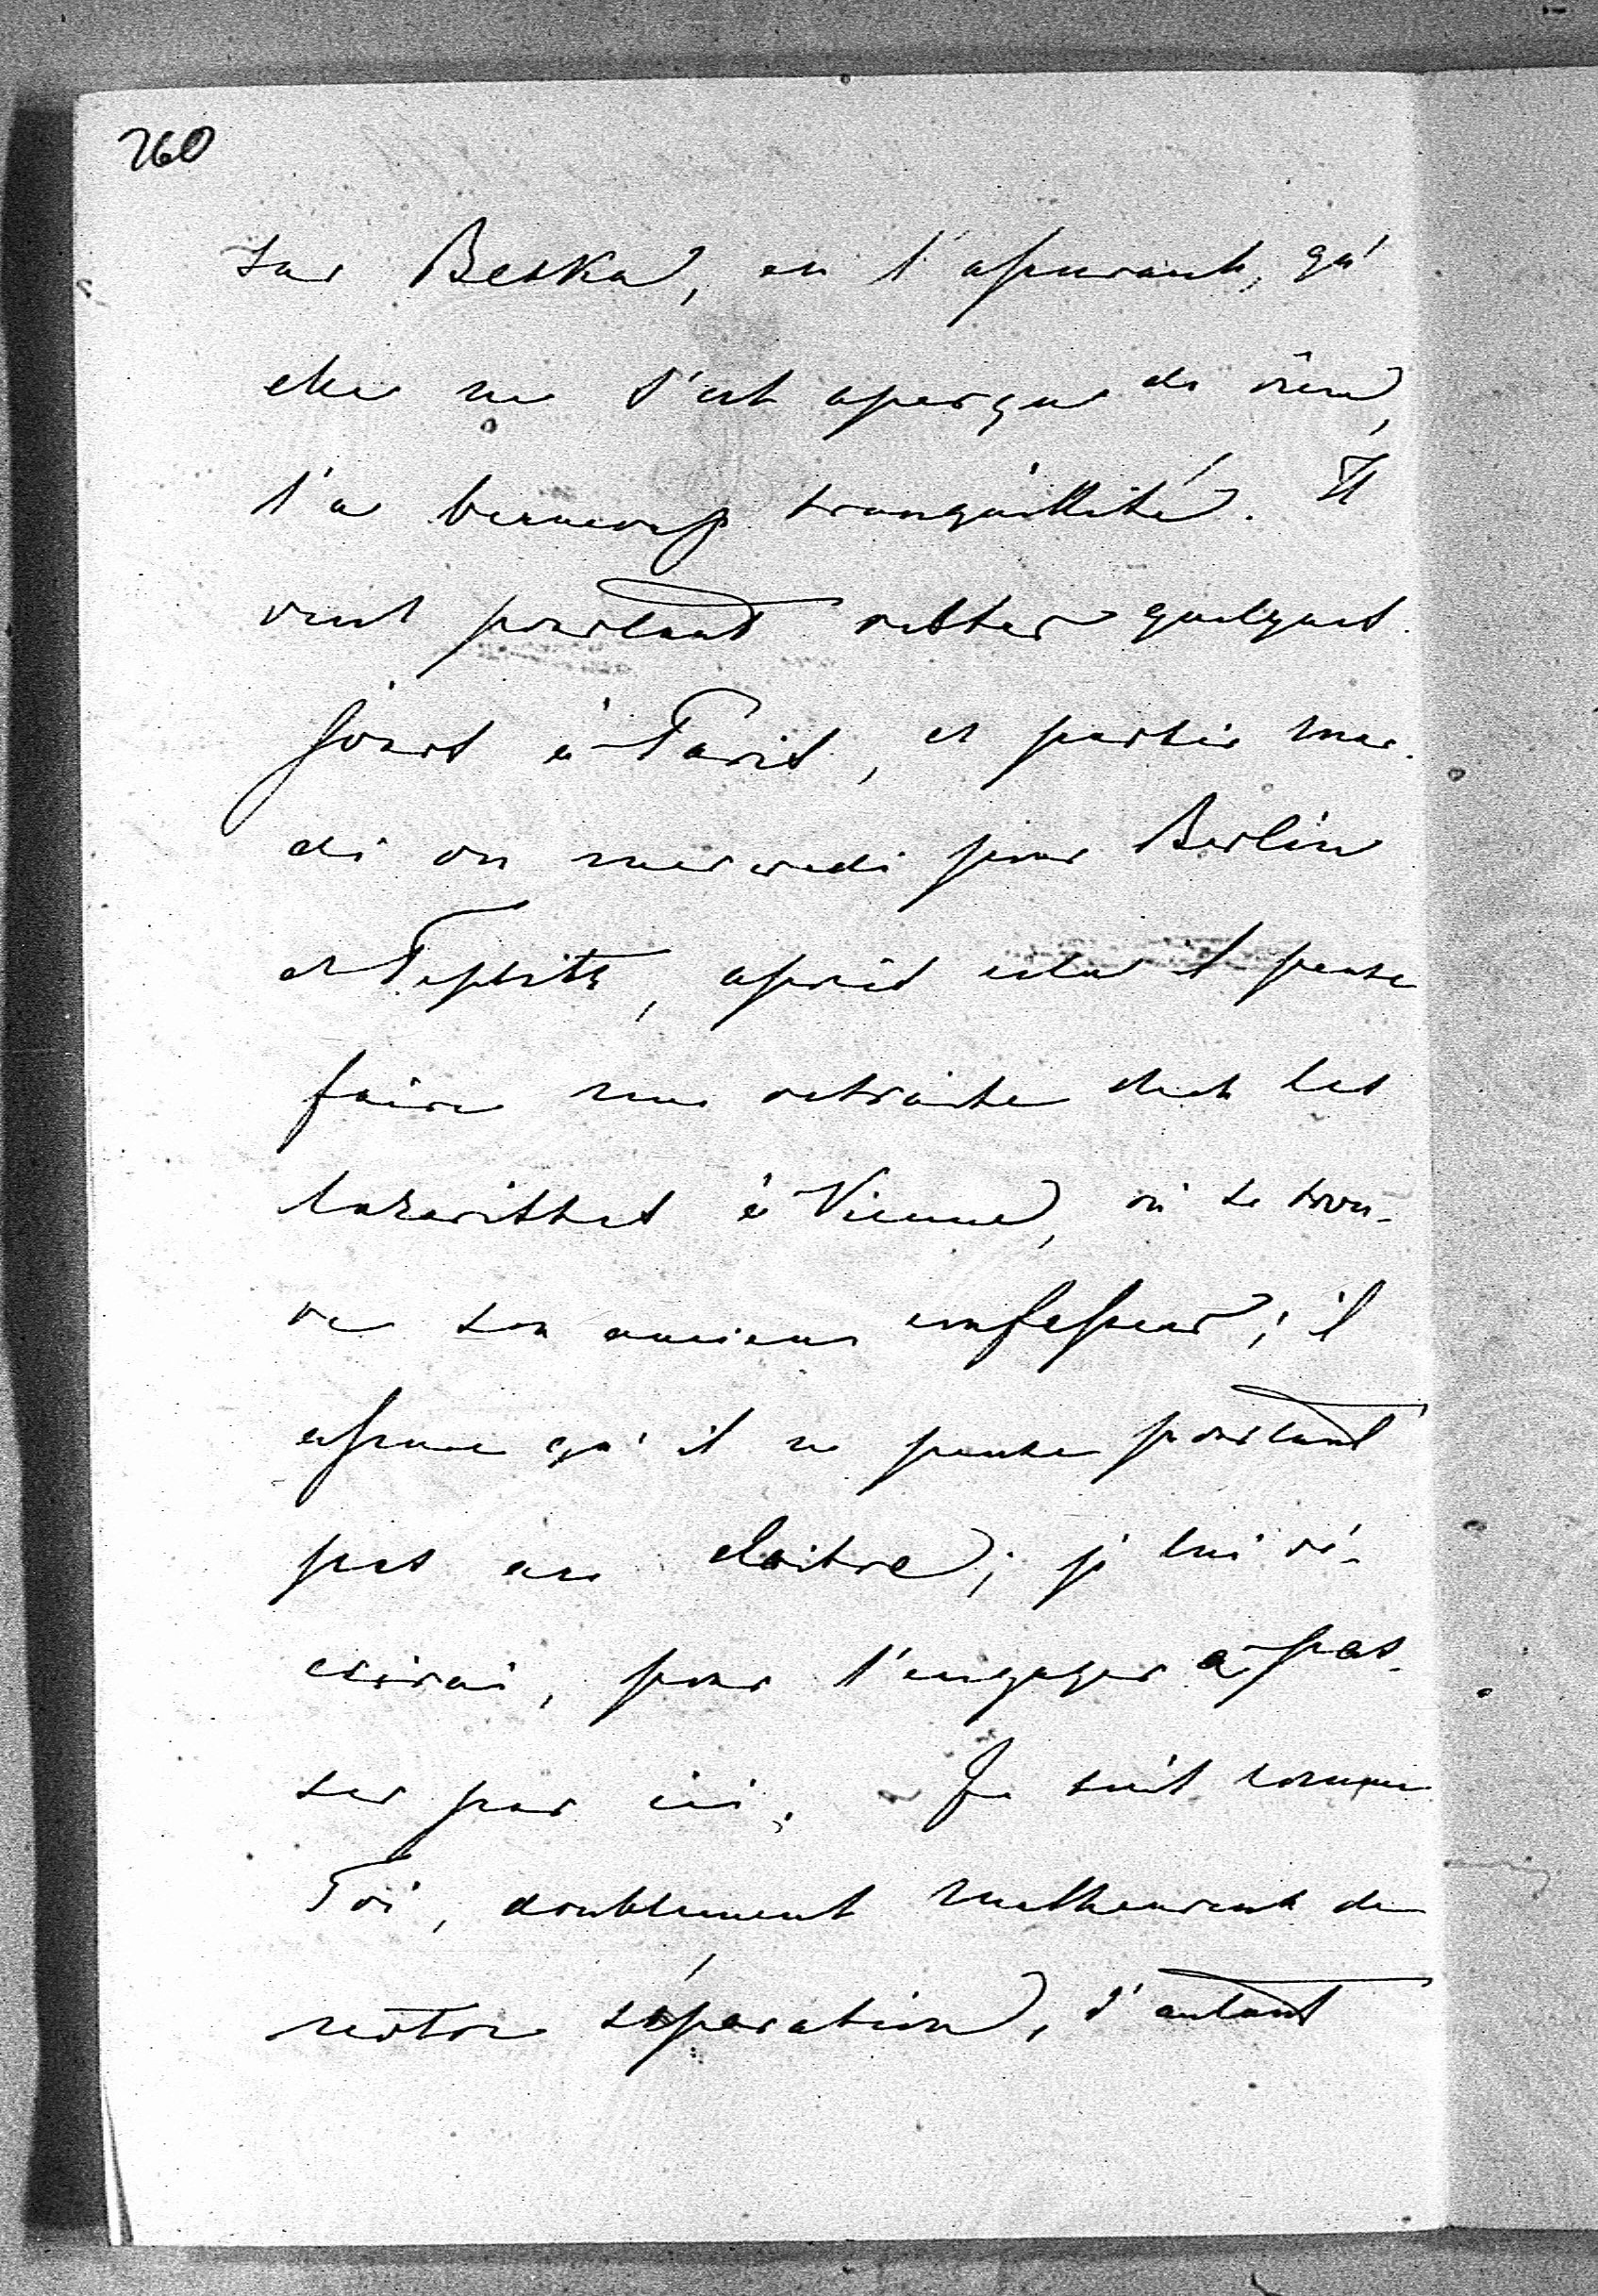 260
sur Beska, en l'assurant, qu'
elle ne s'est aperçue de rien,
l'a beaucoup tranquillisé. Il
veut pourtant rester quelques
jours à Paris, et partir mar-
di ou mercredi pour Berlin
et Teplitz, après cela il pense
faire une retraite chez les
lazaristes à Vienne, où se trou-
ve son ancien confesseur; il
assure qu'il ne pense pourtant
pas au cloître; je lui ré-
crirai, pour l'engager à pas-
ser par ici. – Je suis comme
Toi, doublement malheureux de
notre séparation, d'autant